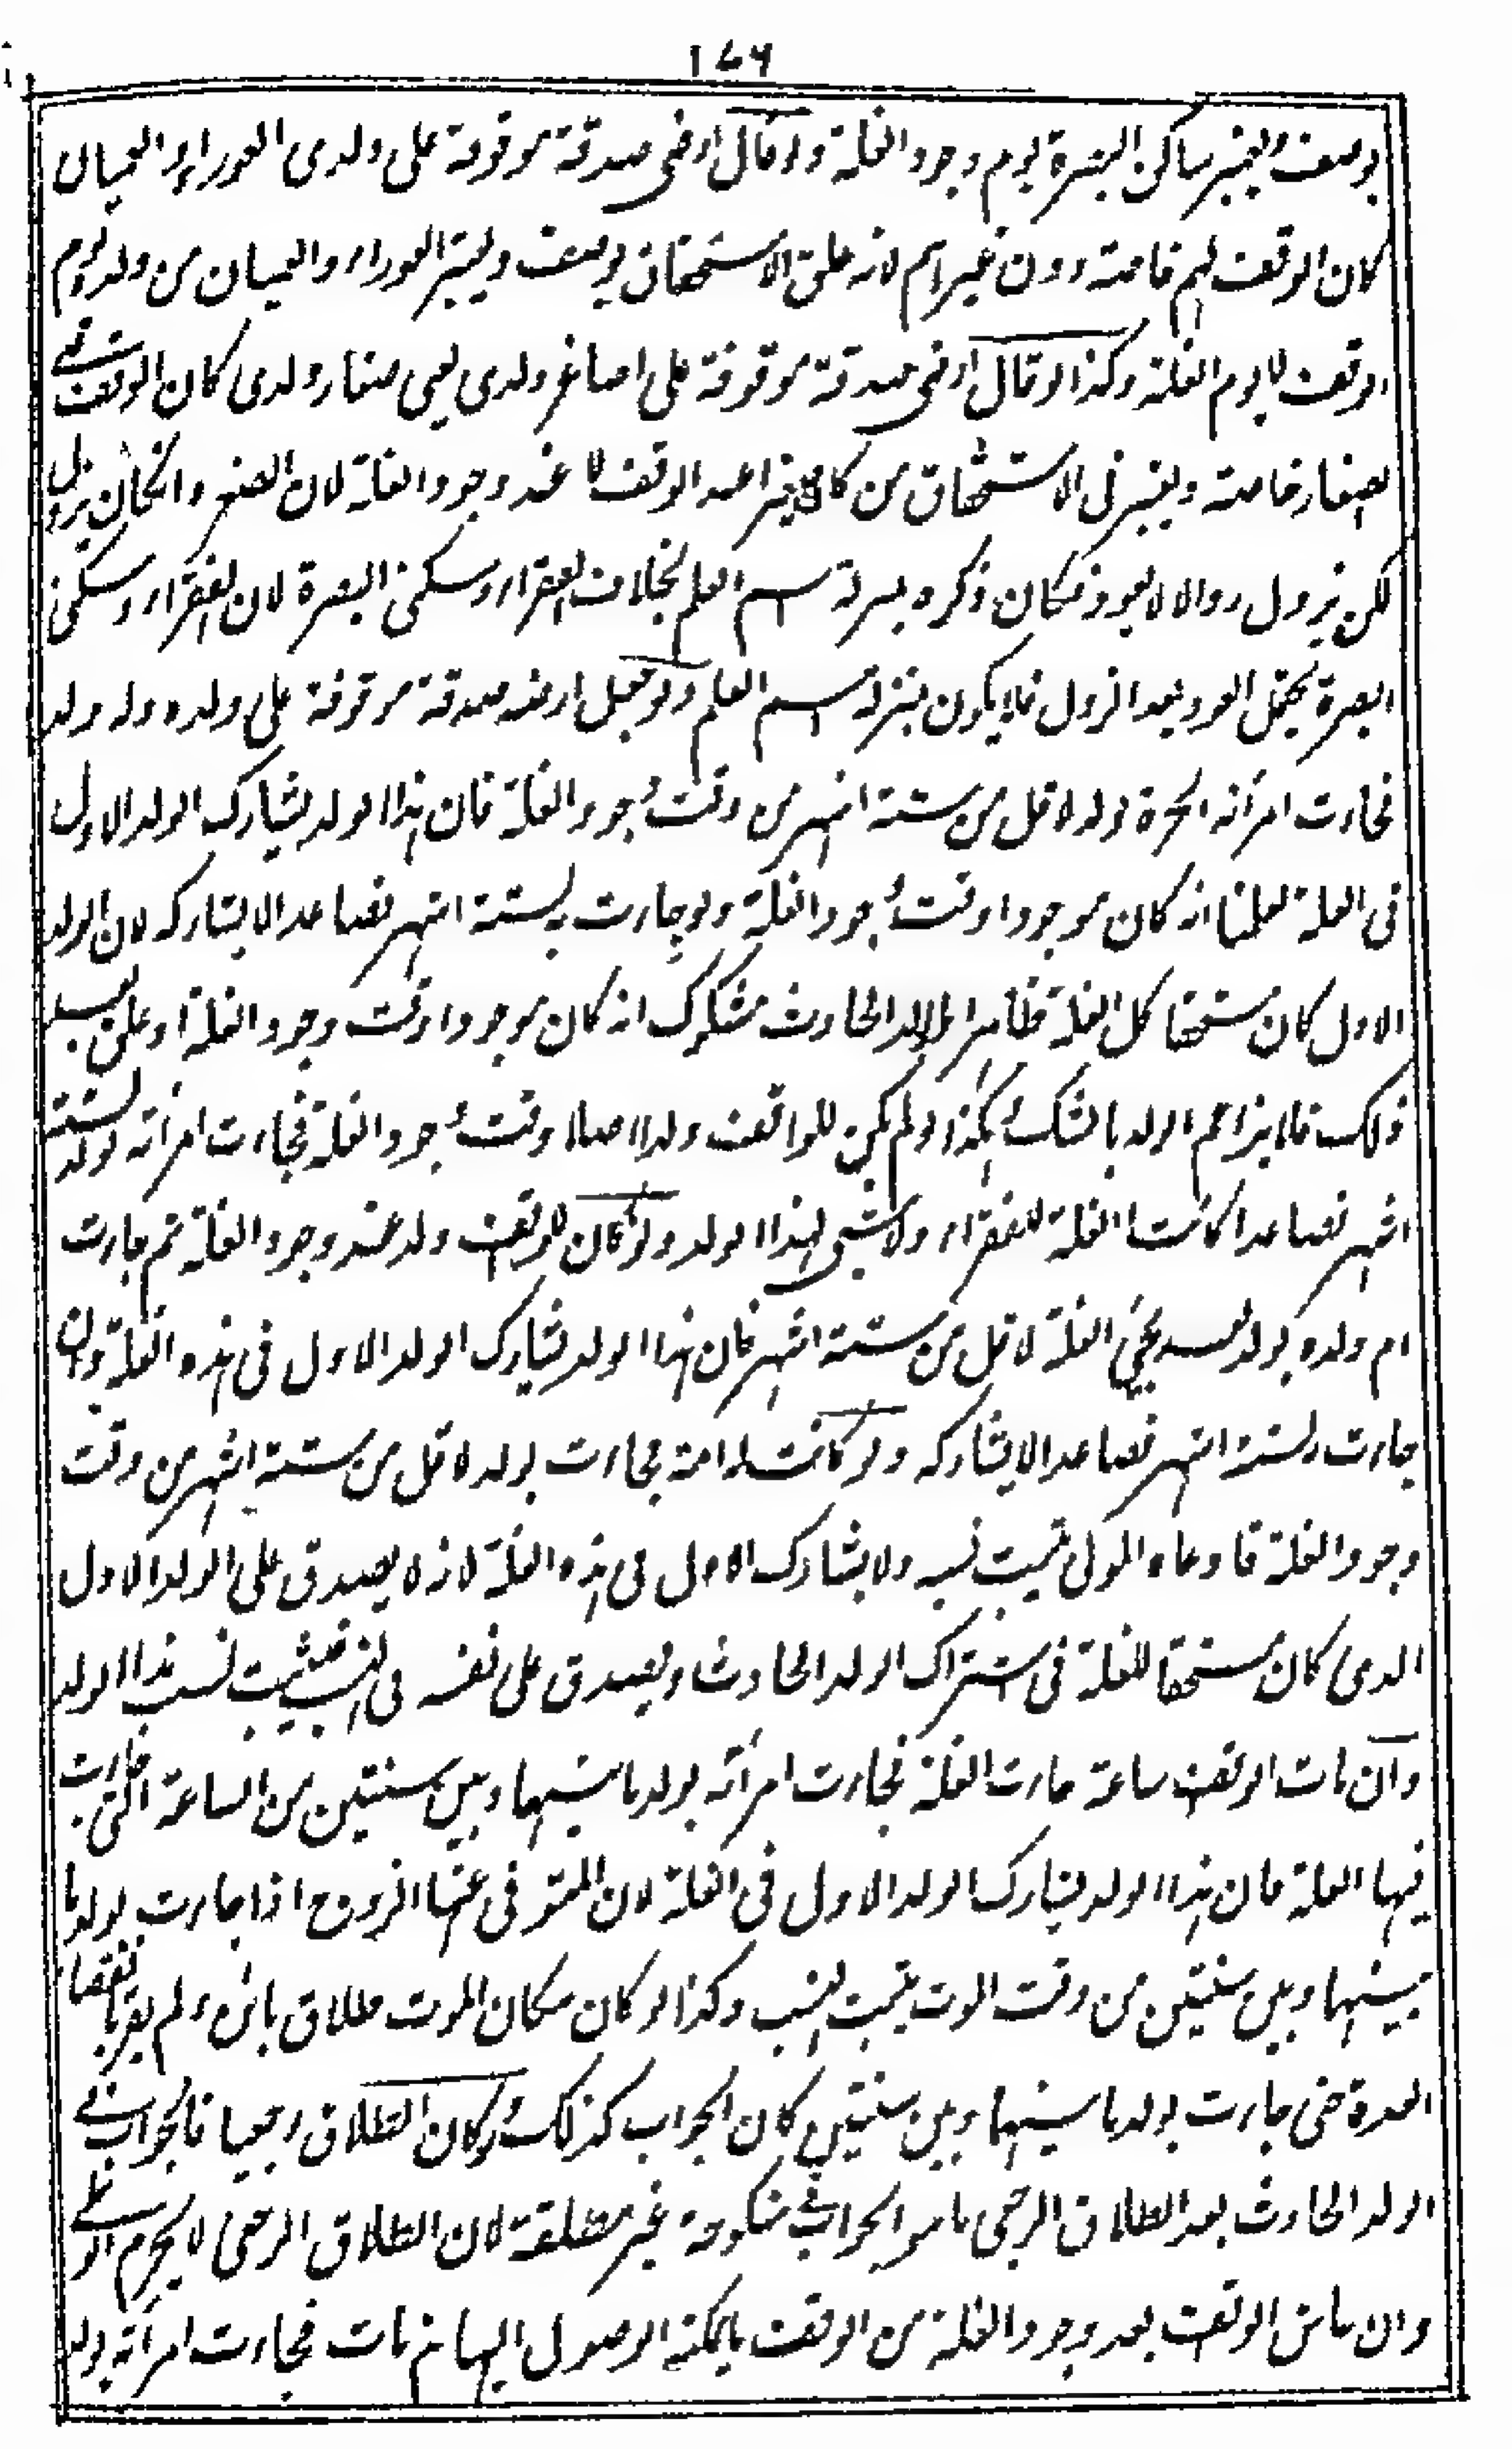 ١٧٦
بوصف ويعتبر ساكن البصرة يوم وجود الغلة ولو قال ارضى صدقة موقوفة على ولدى العوراء والعميان
كان الوقف لهم خاصة دون غيرهم لانه علق الاستحقاق بوصف ويعتبر العوراء والعميان من ولده يوم
الوقف لا يوم الغلة وكذا لو قال ارضى صدقة موقوفة على اصاغر ولدى يعنى صغار ولدى كان الوقف فى
الصغار خاصة ويعتبر فى الاستحقاق من كان صغيرا عند الوقف لا عند وجود الغلة لان الصغر وان كان يزول
لكن يزول زوالا لا يعود فكان ذكره بمنزلة اسم العلم بخلاف الفقراء وسكنى البصرة لان الفقراء وسكنى
البصرة يحتمل العود بعد الزول فلا يكون بمنزلة اسم العلم ولو جعل ارضه صدقة موقوفة على ولده وله ولد
فجاءت امرأته الحرة بولد لاقل من ستة اشهر من وقت وجود الغلة فان هذا الولد يشارك الولد الاول
فى الغلة لعلمنا انه كان موجودا وقت وجود الغلة ولو جاءت به لستة اشهر فصاعدا لا يشاركه لان الولد
الاول كان مستحقا كل الغلة ظاهرا والولد الحادث مشكوك انه كان موجودا وقت وجود الغلة او علق بعد
ذلك فلا يزاحم الولد بالشك وكذا لو لم يكن للواقف ولد اصلا وقت وجود الغلة فجاءت امرأته بولد لستة
اشهر فصاعدا كانت الغلة للفقراء ولا شئ لهذا الولد ولو كان للواقف ولد عند وجود الغلة ثم جاءت
ام ولده بولد بعد مجئ الغلة لاقل من ستة اشهر كان هذا الولد يشارك الولد الاول فى هذه الغلة وان
جاءت لستة اشهر فصاعدا لا يشاركه ولو كانت له امة فجاءت بولد لاقل من ستة اشهر من وقت
وجود الغلة فادعاه المولى يثبت نسبه ولا يشارك الاول فى هذه الغلة لانه لا يصدق على الولد الاول
الذى كان مستحقا للغلة فى اشتراك الولد الحادث ويصدق على نفسه فى النسب فيثبت نسب هذا الولد
وان مات الواقف ساعة جاءت الغلة فجاءت امرأته بولد ما بينها وبين سنتين من الساعة التى جاءت
فيها الغلة فان هذا الولد يشارك الولد الاول فى الغلة لان المتوفى عنها الزوج اذا جاءت بولد ما
بينها وبين سنتين من وقت الموت يثبت النسب وكذا لو كان مكان الموت طلاق بائن ولم يقر بانقضاء
العدة حتى جاءت بولد ما بينها وبين سنتين كان الجواب كذلك ولو كان الطلاق رجعيا فالجواب فى
الولد الحادث بعد الطلاق الرجعى ما هو الجواب فى منكوحة غير مطلقة لان الطلاق الرجعى لا يحرم الوطى
وان عاش الواقف بعد وجود الغلة من الوقف ما يمكنه الوصول اليها ثم مات فجاءت امرأته بولد